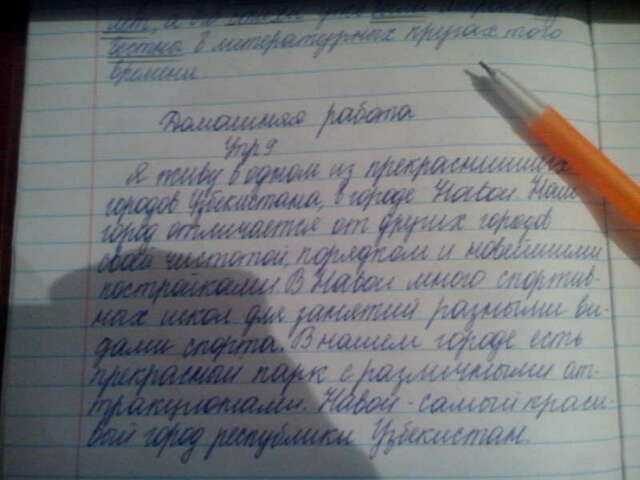 лет, а его стихи уже были
честна в литературных кругах того
времени
Домашняя работа
Упр 9
Я живу в одном из прекраснейших
городов Узбекистана, в городе Навои. Наш
город отличается от других городов
своей чистотой, порядком и новейшими
постройками. В Навои много спортив-
ных школ для занятий разными ви-
дами спорта. В нашем городе есть
прекрасный парк с различными ат-
тракционами. Навои - самый краси-
вой город республики Узбекистан.